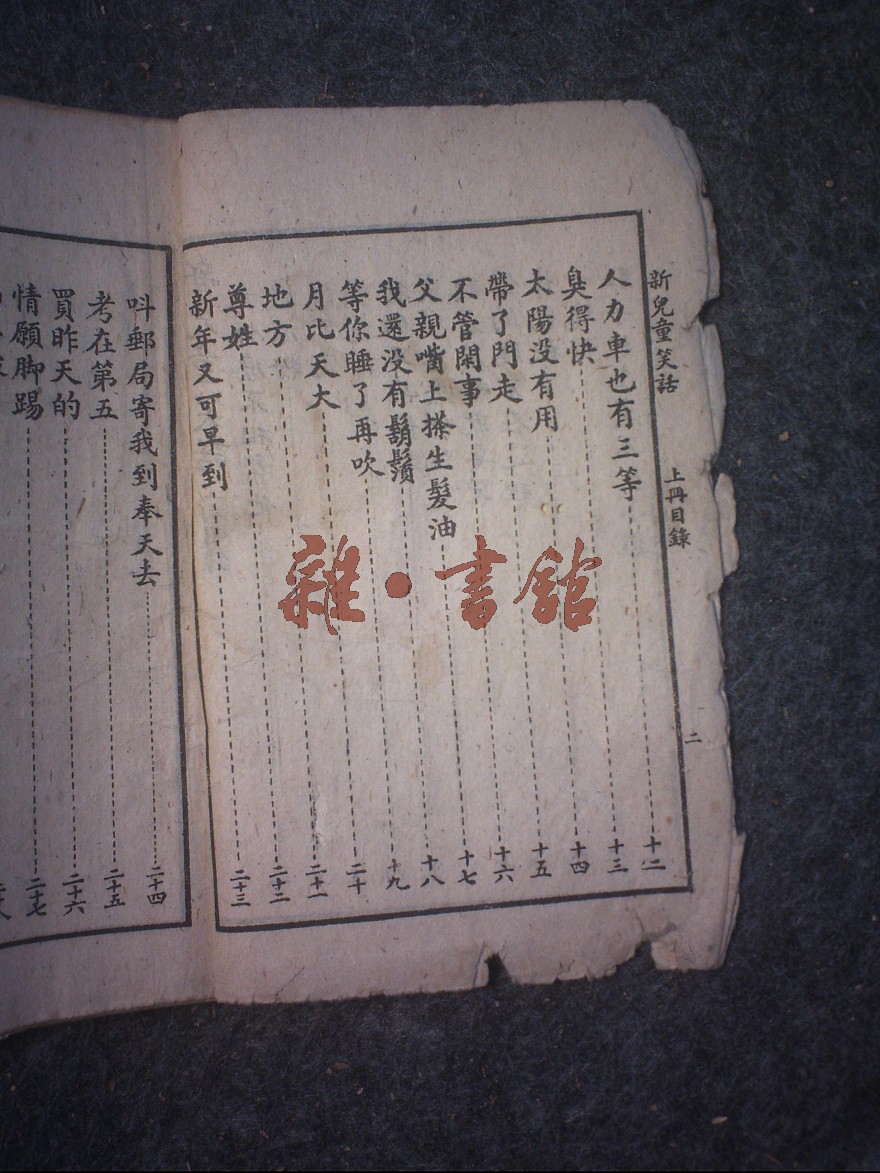 新兒童笑話 上冊目錄 二
人力車也有三等 十二
臭得快 十三
太陽没有用 十四
帶了門走 十五
不管閑事 十六
父親嘴上搽生髮油 十七
我還没有鬍鬚 十八
等你睡了再吹 十九
月比天大 二十
地方 二十一
尊姓 二十二
新年又可早到 二十三
呌郵局寄我到奉天去 二十四
考在第五 二十五
買昨天的 二十六
情願脚踢 二十七
雜·書館